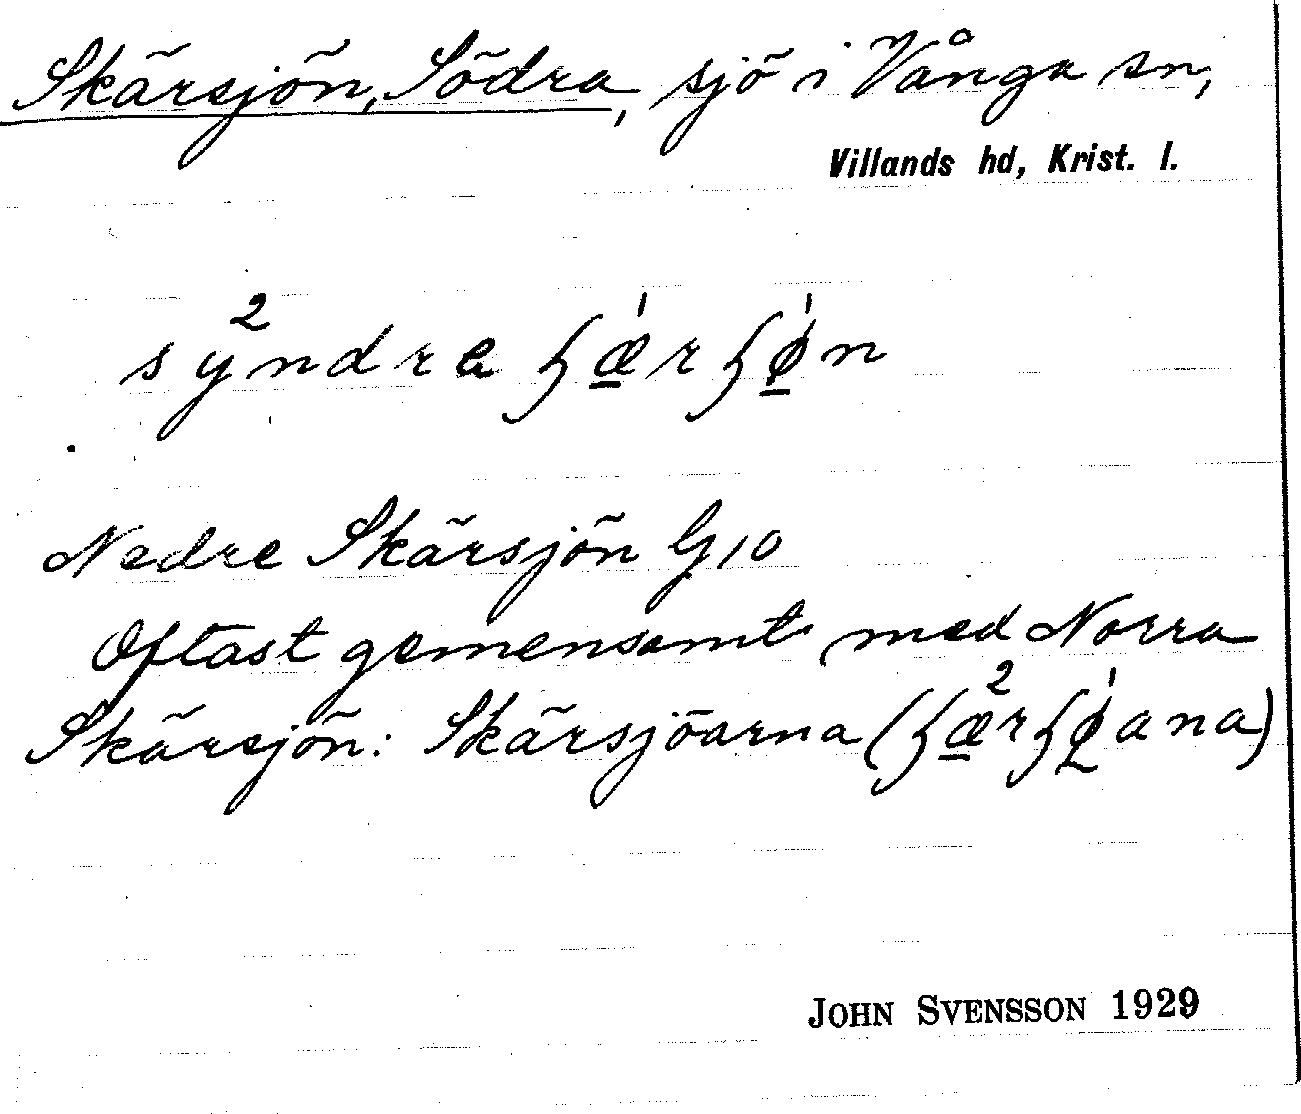 Skärsjön, Södra, sjö i Vånga sn,
Villands hd, Krist. l.
sy²ndra ʃæ̲ˈrʃø̲ˈn
Nedre Skärsjön G 10
Oftast gemensamt med Norra
Skärsjön: Skärsjöarna (ʃæ̲²rʃø̲ˈana)
JOHN SVENSSON 1929